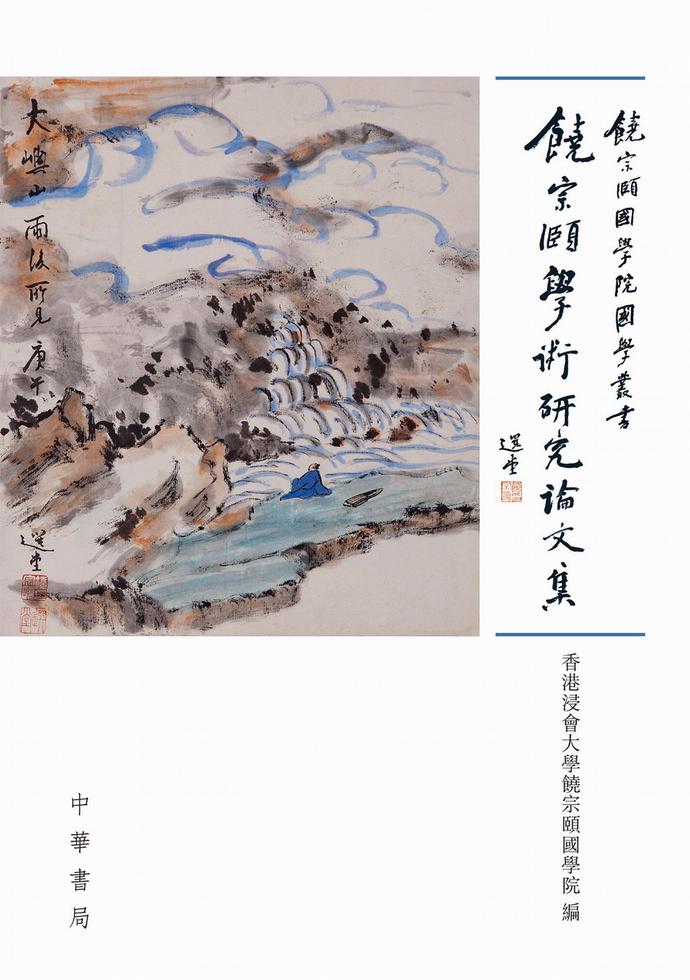 饒宗頤國學院國學叢書
饒宗頤學術研究論文集
選堂
香港浸會大學饒宗頤國學院 編
大嶼山雨後所見 庚午
選堂
中華書局